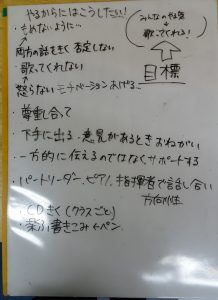 やるからにはこうしたい!
・もめないように…
両方の話をきく 否定しない
・歌ってくれない
怒らない モチベーションあげる
みんなのやる気
歌ってくれる!
目標
・尊重し合って
・下手に出る、意見があるときおねがい
・一方的に伝えるのではなくサポートする
・パートリーダー、ピアノ、指揮者で話し合い
方向性
・CDきく(クラスごと)
・楽ふ書きこみ←ペン。